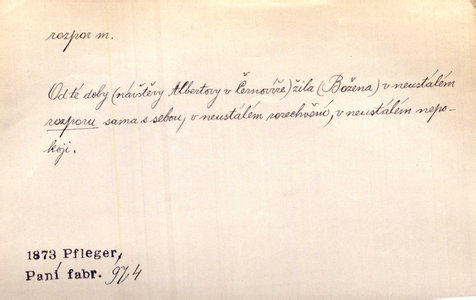 rozpor m.
Od té doby (návštěvy Albertovy v Černovíře) žila (Božena) v neustálém
rozporu sama s sebou, v neustálém rozechvění, v neustálém nepo-
koji.
1873 Pfleger,
Paní fabr. 97,4